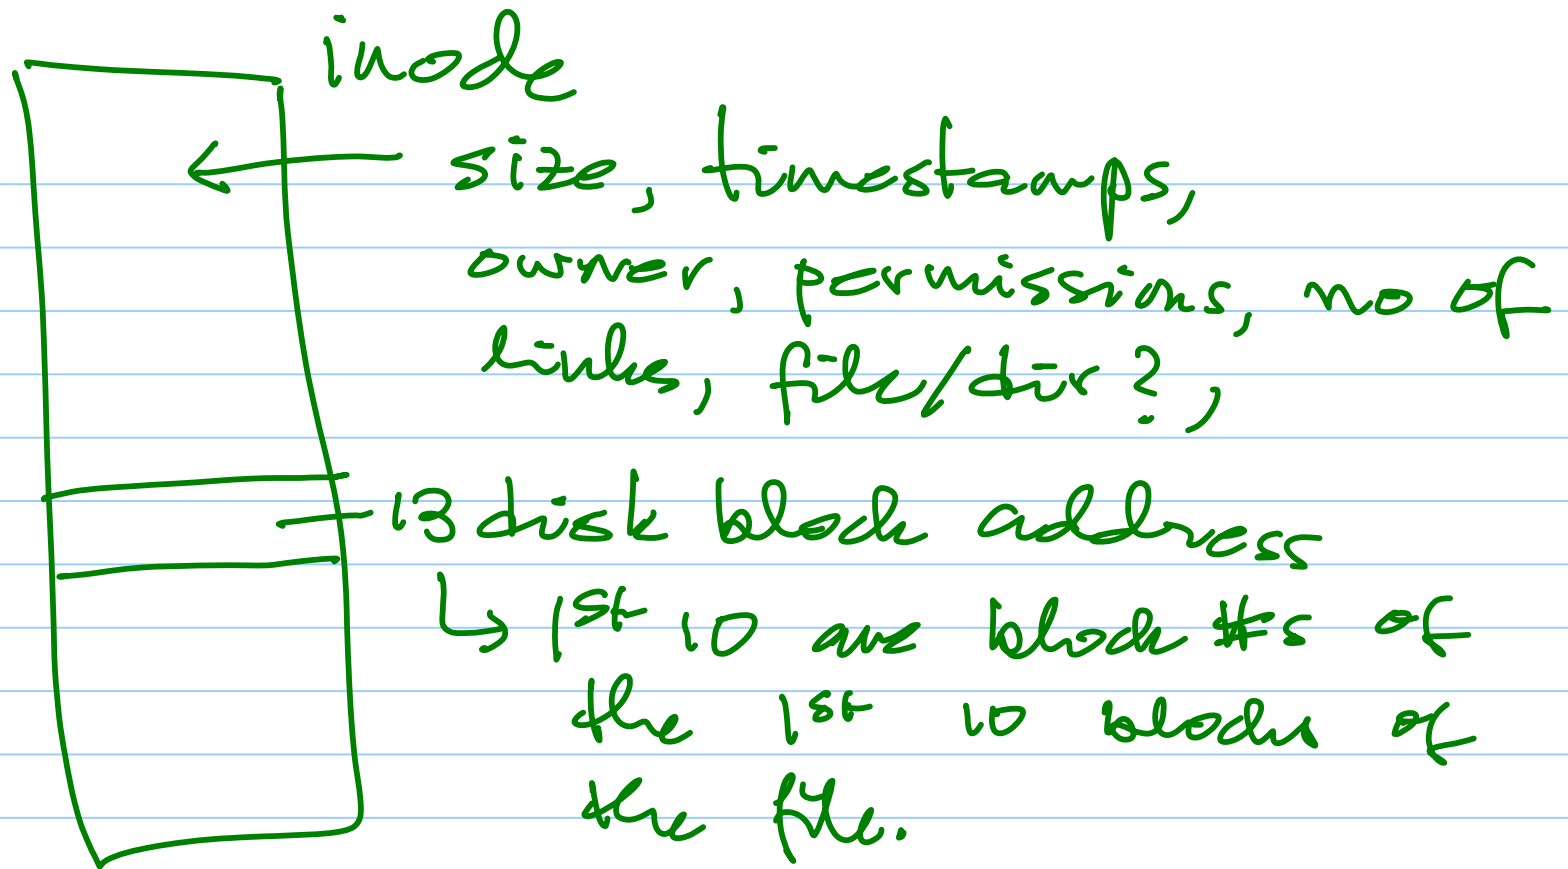 inode
size, timestamps,
owner, permissions, no of
links, file/dir?,
13 disk block address
1st 10 are block #s of
the 1st 10 blocks of
the file.